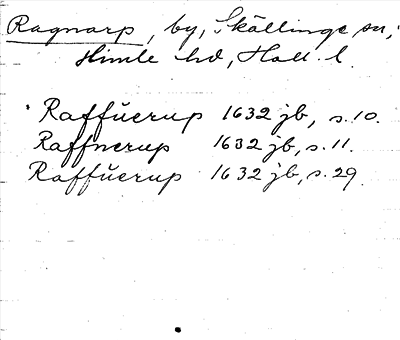 Ragnarp, by, Skällinge sn,
Himle hd, Hall. l.
Raffŭerup 1632 jb, s. 10.
Raffnerup 1632 jb, s. 11.
Raffŭerup 1632 jb, s. 29.